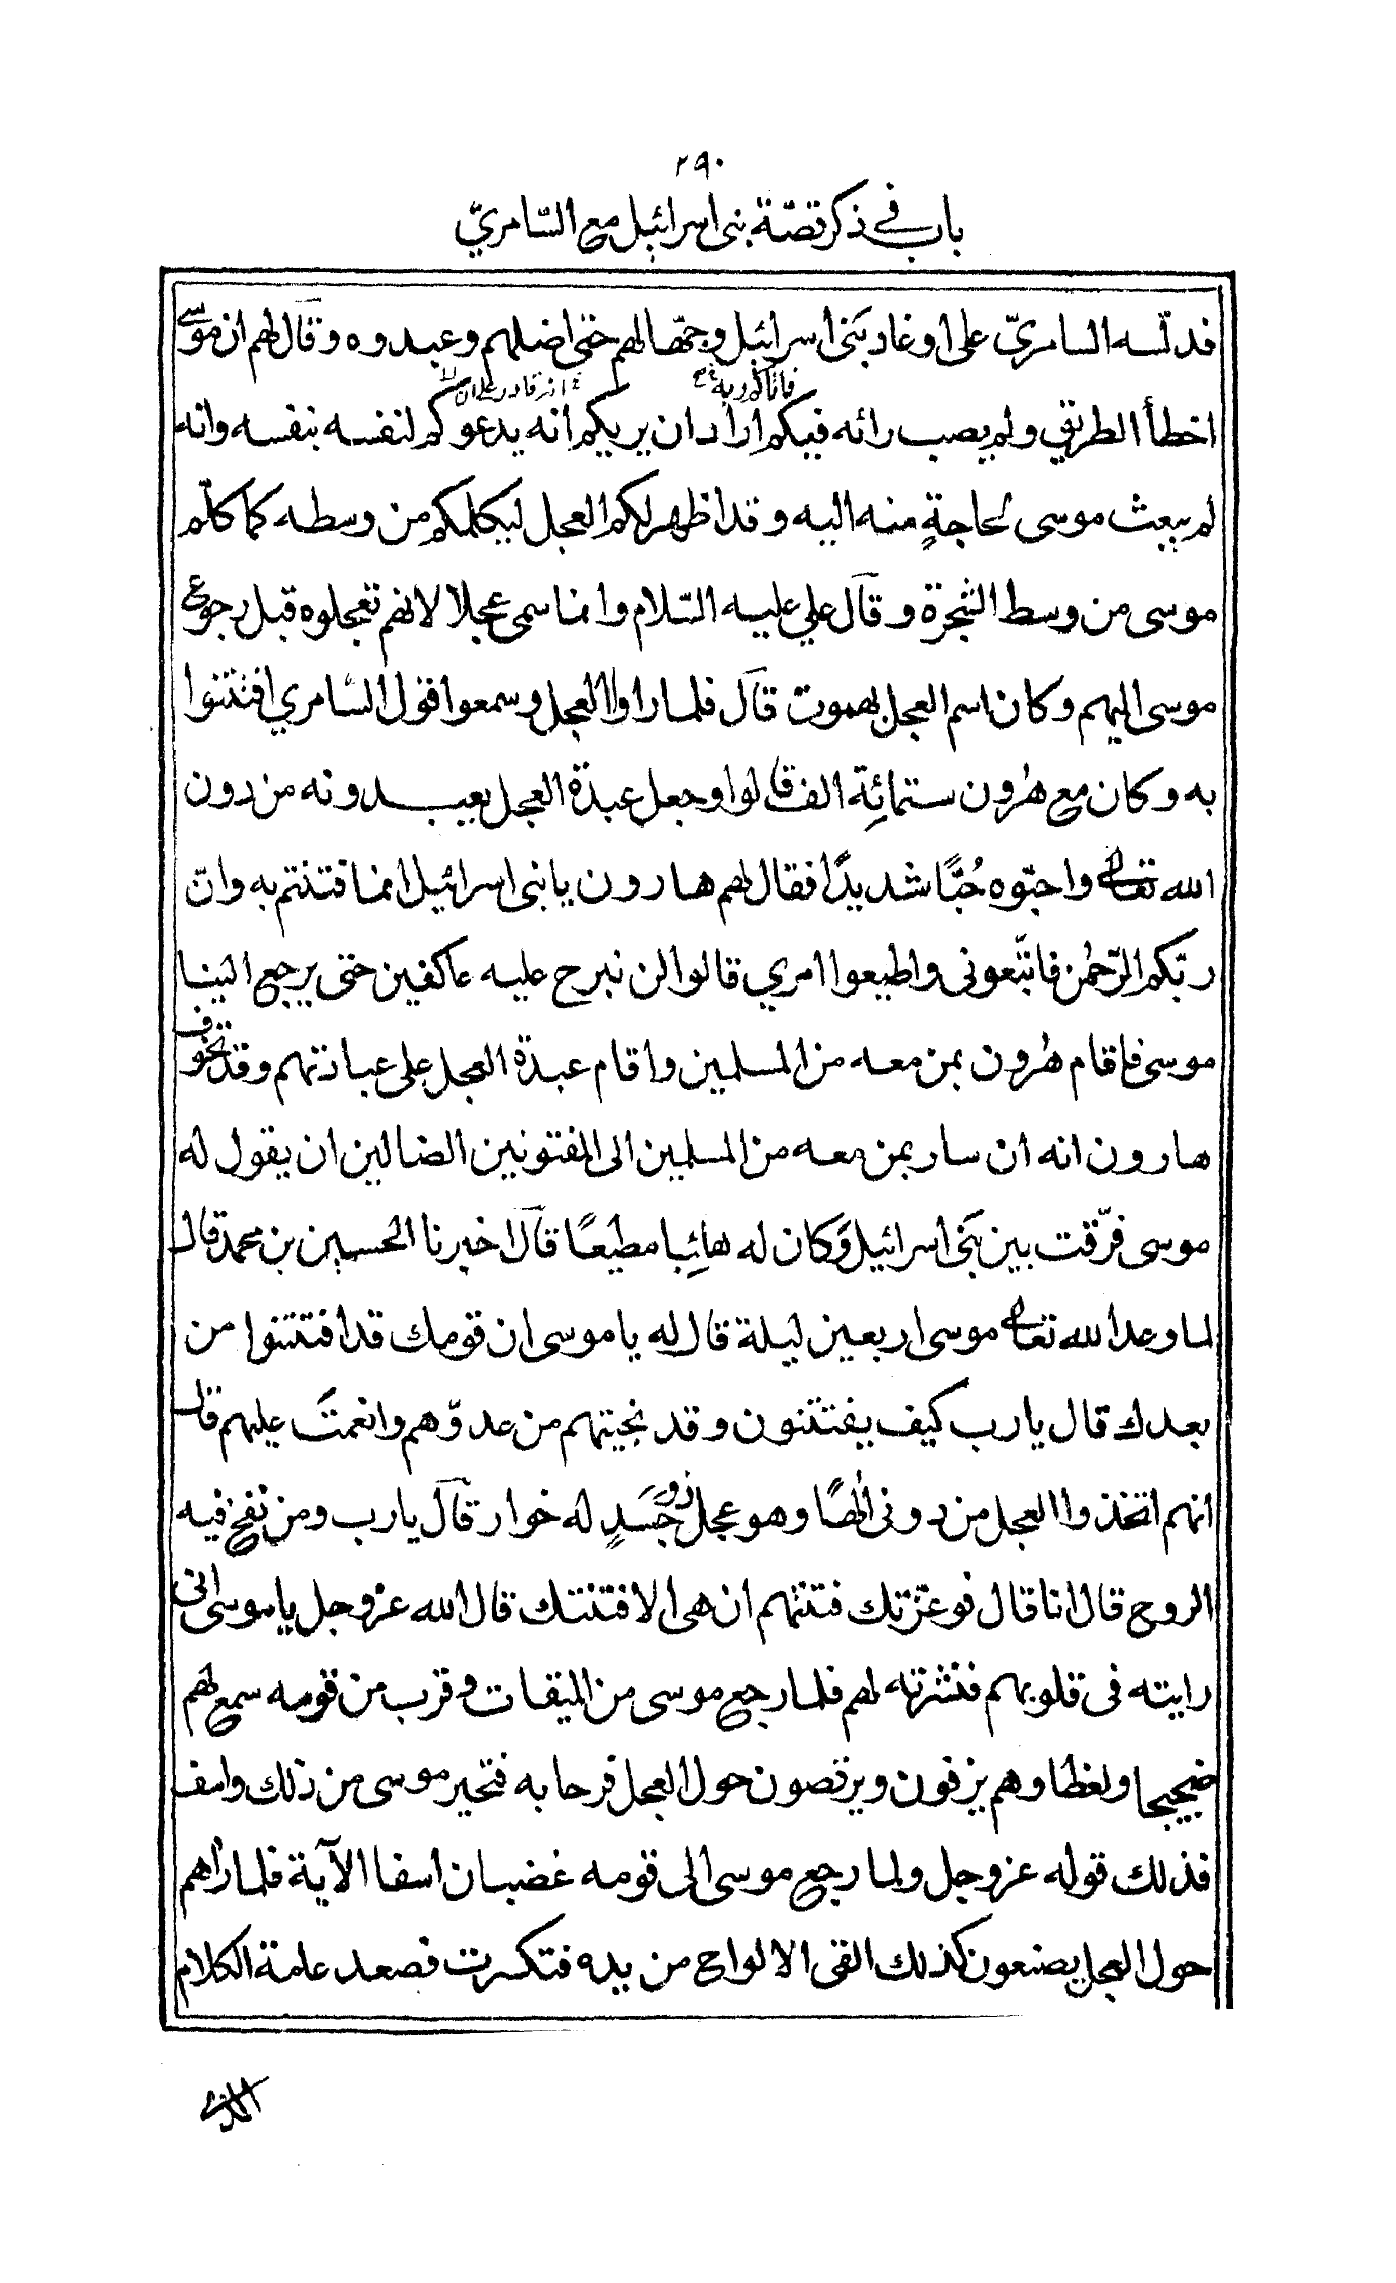 ٢٩٠
باب في ذكر قصّة بنى اسرائيل مع السّامريّ
فدلّسه السامريّ على اوغاد بَنى اسرائيل وجهّالهم حتى اضلهم وعبدوه وقال لهم ان موسى
اخطأ الطريق ولم يصب رائه فيكم اراد ان يريكم انه يدعوكم لنفسه بنفسه وانه
لم يبعث موسى لحاجةٍ منه اليه وقد اظهر لكم العجل ليكلمكم من وسطه كما كلّم
موسى من وسط الشجرة وقال علي عليه السّلام وانما سمى عجلا لانهم تعجلوه قبل رجوع
موسى اليهم وكان اسم العجل بهموت قال فلما راوا العجل وسمعوا قول السّامري افتتنوا
به وكان مع هٰرون ستمائِة الف قالوا وجعل عبدة العجل يعبدونه من دون
الله تعالى واحبّوه حُبًّا شديدًا فقال لهم هارون يا بنى اسرائيل انما فتنتم به وانّ
ربّكم الرّحمٰن فاتّبعونى واطيعوا امري قالوا لن نبرح عليه عاكفين حتى يرجع الينا
موسى فاقام هٰرون بمن معه من المسلمين واقام عبدة العجل على عبادتهم وقد تخوف
هارون انه ان سار بمن معه من المسلمين الى المفتونين الضالين ان يقول له
موسى فرّقت بين بَنى اسرائيل وَكان له هائِبا مطيعًا قال اخبرنا الحسين بن محمد قال
لما وعد الله تعالى موسى اربعين ليلة قال له يا موسى ان قومك قد افتتنوا من
بعدك قال يا رب كيف يفتتنون وقد نجيتهم من عدوّهم وانعمتَ عليهم قال
انهم اتخذوا العجل من دونى الٰهًا وهو عجل ذو جَسَدٍ له خوار قال يا رب ومن نفخ فيه
الروح قال انا قال فوعزّتك فتنتهم ان هى الا فتنتك قال الله عز وجل يا موسى انى
رايته فى قلوبهم فنشرته لهم فلما رجع موسى من الميقات وقرب من قومه سمع لهم
ضجيجا ولغطا وهم يزفون ويرقصون حول العجل فرحا به فتحير موسى من ذلك واسف
فذلك قوله عز وجل ولما رجع موسى الى قومه غضبان اسفا الآية فلما راٰهم
حول العجل يصنعون كذلك القى الالواح من يده فتكسرت فصعد عامة الكلام